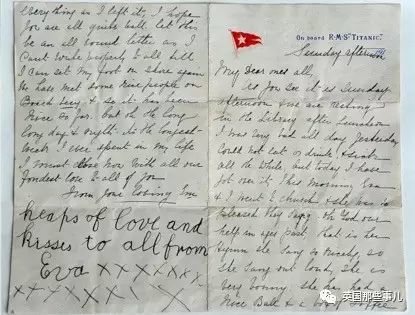 On board R·M·S "TITANIC."
Sunday afternoon
My Dear ones all,
As you see it is Sunday
afternoon & we are resting
in the Library after Luncheon
I was very bad all day Yesterday
Could not eat or drink, & sick
all the while, but today I have
got over it. This Morning Eva
& I went to Church & she was so
pleased they sang Oh God our
help in ages past that is her
Hymn she sang so Nicely, so
She Sang out loud, She is
very bonny. She has had a
Nice Ball & a box of Toffee
everything as I left it, I hope
you are all quite well let this
be an all round letter as I
Can't write properly to all till
I can set my foot on shore again
We have met some nice people on
Board Lucy, & so it has been
Nice so far. but oh the long
long days & nights its the longest
Break I ever spent in my life
I must close Now with all our
fondest Love to all of you
From Your loving Ess
heaps of love and
kisses to all from
Eva xxxxxxx
xxxxxxxxxx
英国那些事儿